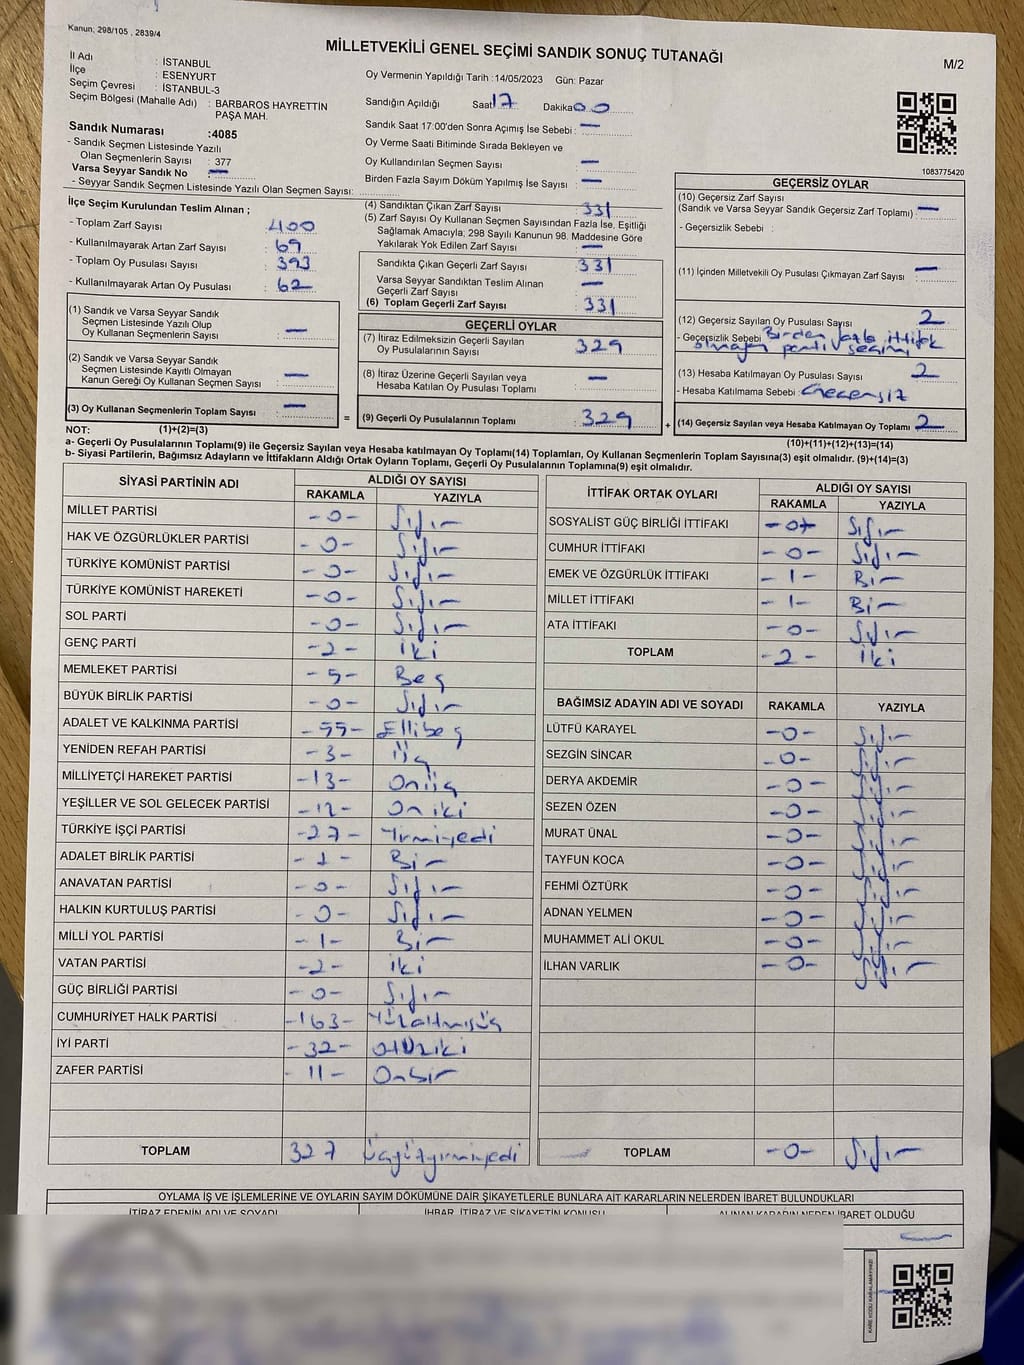 Kanun; 298/105 , 2839/4
MİLLETVEKİLİ GENEL SEÇİMİ SANDIK SONUÇ TUTANAĞI
M/2
İl Adı : İSTANBUL
İlçe : ESENYURT
Seçim Çevresi : İSTANBUL-3
Seçim Bölgesi (Mahalle Adı) : BARBAROS HAYRETTİN
PAŞA MAH.
Sandık Numarası :4085
- Sandık Seçmen Listesinde Yazılı
Olan Seçmenlerin Sayısı : 377
Varsa Seyyar Sandık No —
- Seyyar Sandık Seçmen Listesinde Yazılı Olan Seçmen Sayısı:
Oy Vermenin Yapıldığı Tarih :14/05/2023 Gün: Pazar
Sandığın Açıldığı Saat 17 Dakika 00
Sandık Saat 17:00'den Sonra Açımış İse Sebebi : —
Oy Verme Saati Bitiminde Sırada Bekleyen ve
Oy Kullandırılan Seçmen Sayısı —
Birden Fazla Sayım Döküm Yapılmış İse Sayısı —
1083775420
İlçe Seçim Kurulundan Teslim Alınan ;
- Toplam Zarf Sayısı : 400
- Kullanılmayarak Artan Zarf Sayısı : 69
- Toplam Oy Pusulası Sayısı : 393
- Kullanılmayarak Artan Oy Pusulası : 62
(1) Sandık ve Varsa Seyyar Sandık
Seçmen Listesinde Yazılı Olup
Oy Kullanan Seçmenlerin Sayısı : —
(2) Sandık ve Varsa Seyyar Sandık
Seçmen Listesinde Kayıtlı Olmayan
Kanun Gereği Oy Kullanan Seçmen Sayısı : —
(3) Oy Kullanan Seçmenlerin Toplam Sayısı : —
(4) Sandıktan Çıkan Zarf Sayısı : 331
(5) Zarf Sayısı Oy Kullanan Seçmen Sayısından Fazla İse, Eşitliği
Sağlamak Amacıyla; 298 Sayılı Kanunun 98. Maddesine Göre
Yakılarak Yok Edilen Zarf Sayısı : —
Sandıkta Çıkan Geçerli Zarf Sayısı : 331
Varsa Seyyar Sandıktan Teslim Alınan
Geçerli Zarf Sayısı : —
(6) Toplam Geçerli Zarf Sayısı : 331
GEÇERLİ OYLAR
(7) İtiraz Edilmeksizin Geçerli Sayılan
Oy Pusulalarının Sayısı : 329
(8) İtiraz Üzerine Geçerli Sayılan veya
Hesaba Katılan Oy Pusulaları Toplamı : —
= (9) Geçerli Oy Pusulalarının Toplamı : 329 +
GEÇERSİZ OYLAR
(10) Geçersiz Zarf Sayısı
(Sandık ve Varsa Seyyar Sandık Geçersiz Zarf Toplamı) : —
- Geçersizlik Sebebi :
(11) İçinden Milletvekili Oy Pusulası Çıkmayan Zarf Sayısı : —
(12) Geçersiz Sayılan Oy Pusulası Sayısı : 2
- Geçersizlik Sebebi : Birden fazla ittifak
olmayan parti seçimi
(13) Hesaba Katılmayan Oy Pusulası Sayısı : 2
- Hesaba Katılmama Sebebi : Geçersiz
(14) Geçersiz Sayılan veya Hesaba Katılmayan Oy Toplamı : 2
NOT: (1)+(2)=(3)
(10)+(11)+(12)+(13)=(14)
a- Geçerli Oy Pusulalarının Toplamı(9) ile Geçersiz Sayılan veya Hesaba katılmayan Oy Toplamı(14) Toplamları, Oy Kullanan Seçmenlerin Toplam Sayısına(3) eşit olmalıdır. (9)+(14)=(3)
b- Siyasi Partilerin, Bağımsız Adayların ve İttifakların Aldığı Ortak Oyların Toplamı, Geçerli Oy Pusulalarının Toplamına(9) eşit olmalıdır.
SİYASİ PARTİNİN ADI ALDIĞI OY SAYISI
RAKAMLA YAZIYLA
MİLLET PARTİSİ -0- Sıfır
HAK VE ÖZGÜRLÜKLER PARTİSİ -0- Sıfır
TÜRKİYE KOMÜNİST PARTİSİ -0- Sıfır
TÜRKİYE KOMÜNİST HAREKETİ -0- Sıfır
SOL PARTİ -0- Sıfır
GENÇ PARTİ -2- iki
MEMLEKET PARTİSİ -5- Beş
BÜYÜK BİRLİK PARTİSİ -0- Sıfır
ADALET VE KALKINMA PARTİSİ -55- Ellibeş
YENİDEN REFAH PARTİSİ -3- üç
MİLLİYETÇİ HAREKET PARTİSİ -13- Onüç
YEŞİLLER VE SOL GELECEK PARTİSİ -12- On iki
TÜRKİYE İŞÇİ PARTİSİ -27- Yirmiyedi
ADALET BİRLİK PARTİSİ -1- Bir
ANAVATAN PARTİSİ -0- Sıfır
HALKIN KURTULUŞ PARTİSİ -0- Sıfır
MİLLİ YOL PARTİSİ -1- Bir
VATAN PARTİSİ -2- iki
GÜÇ BİRLİĞİ PARTİSİ -0- Sıfır
CUMHURİYET HALK PARTİSİ -163- Yüzaltmışüç
İYİ PARTİ -32- Otuziki
ZAFER PARTİSİ -11- Onbir
TOPLAM 327 Üçyüzyirmiyedi
İTTİFAK ORTAK OYLARI ALDIĞI OY SAYISI
RAKAMLA YAZIYLA
SOSYALİST GÜÇ BİRLİĞİ İTTİFAKI -0- Sıfır
CUMHUR İTTİFAKI -0- Sıfır
EMEK VE ÖZGÜRLÜK İTTİFAKI -1- Bir
MİLLET İTTİFAKI -1- Bir
ATA İTTİFAKI -0- Sıfır
TOPLAM -2- iki
BAĞIMSIZ ADAYIN ADI VE SOYADI RAKAMLA YAZIYLA
LÜTFÜ KARAYEL -0- Sıfır
SEZGİN SİNCAR -0- Sıfır
DERYA AKDEMİR -0- Sıfır
SEZEN ÖZEN -0- Sıfır
MURAT ÜNAL -0- Sıfır
TAYFUN KOCA -0- Sıfır
FEHMİ ÖZTÜRK -0- Sıfır
ADNAN YELMEN -0- Sıfır
MUHAMMET ALİ OKUL -0- Sıfır
İLHAN VARLIK -0- Sıfır
TOPLAM -0- Sıfır
OYLAMA İŞ VE İŞLEMLERİNE VE OYLARIN SAYIM DÖKÜMÜNE DAİR ŞİKAYETLERLE BUNLARA AİT KARARLARIN NELERDEN İBARET BULUNDUKLARI
İTİRAZ EDENİN ADI VE SOYADI İHBAR, İTİRAZ VE ŞİKAYETİN KONUSU ALINAN KARARIN NEDEN İBARET OLDUĞU
KARE KODU KARALAMAYINIZ!